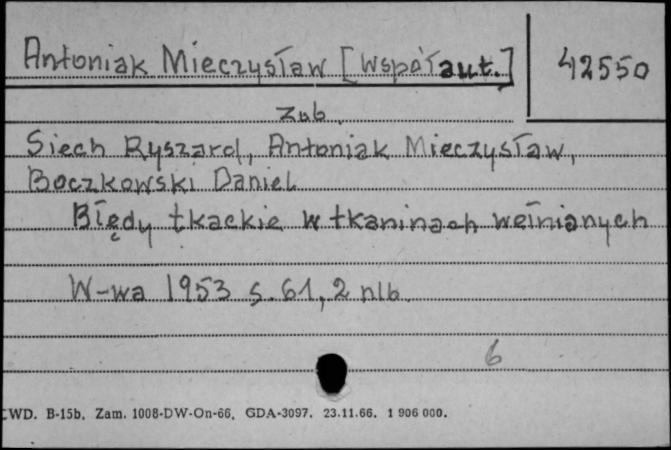 Antoniak Mieczysław [współaut.] 42550
Zob.
Siech Ryszard, Antoniak Mieczysław,
Boczkowski Daniel
Błędy tkackie w tkaninach wełnianych
W-wa 1953 s. 61, 2 nlb.
6
CWD. B-15b. Zam. 1008-DW-On-66. GDA-3097. 23.11.66. 1 906 000.